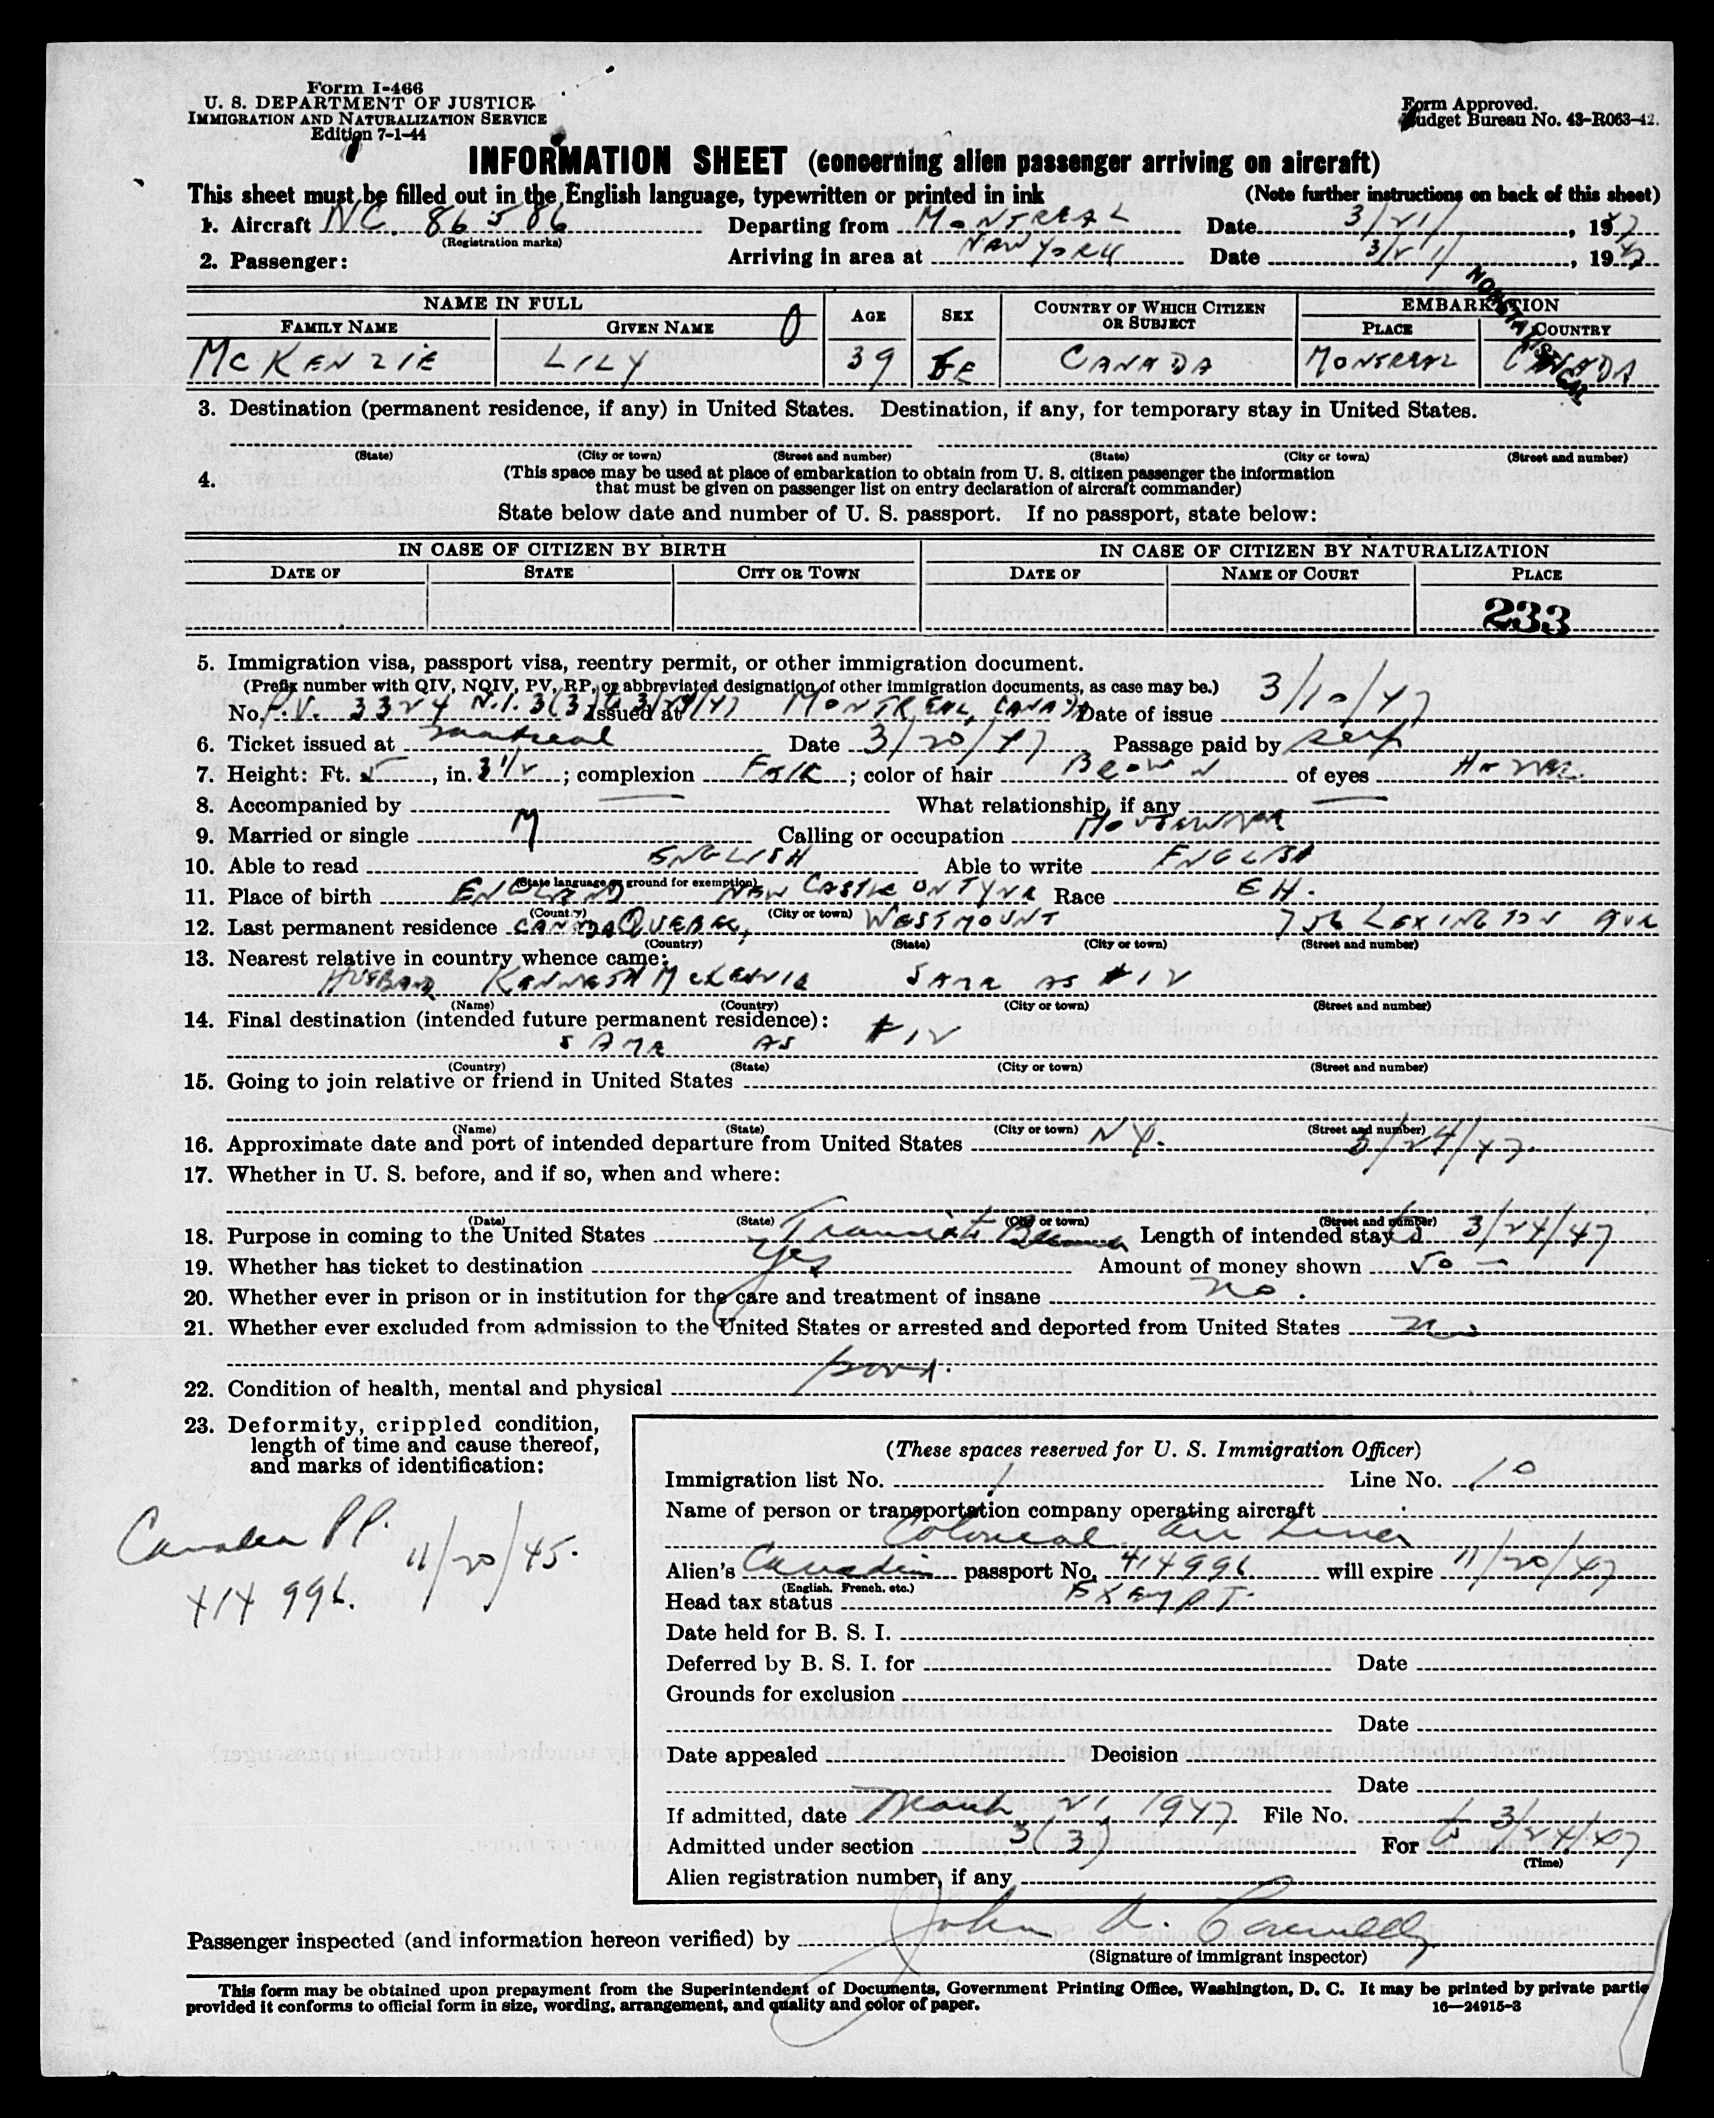 Form I-466
U. S. DEPARTMENT OF JUSTICE
IMMIGRATION AND NATURALIZATION SERVICE
Edition 7-1-44
Form Approved.
Budget Bureau No. 43-R063-42.
INFORMATION SHEET (concerning alien passenger arriving on aircraft)
This sheet must be filled out in the English language, typewritten or printed in ink (Note further instructions on back of this sheet)
1. Aircraft NC. 86586 Departing from MONTREAL Date 3/21/, 1947
(Registration marks)
2. Passenger: Arriving in area at NEW YORK Date 3/21/, 1947
NONSTATISTICAL
NAME IN FULL AGE SEX COUNTRY OF WHICH CITIZEN OR SUBJECT EMBARKATION
FAMILY NAME GIVEN NAME PLACE COUNTRY
MCKENZIE LILY 39 FE CANADA MONTREAL CANADA
3. Destination (permanent residence, if any) in United States. Destination, if any, for temporary stay in United States.
(State) (City or town) (Street and number) (State) (City or town) (Street and number)
4. (This space may be used at place of embarkation to obtain from U. S. citizen passenger the information
that must be given on passenger list on entry declaration of aircraft commander)
State below date and number of U. S. passport. If no passport, state below:
IN CASE OF CITIZEN BY BIRTH IN CASE OF CITIZEN BY NATURALIZATION
DATE OF STATE CITY OR TOWN DATE OF NAME OF COURT PLACE
233
5. Immigration visa, passport visa, reentry permit, or other immigration document.
(Prefix number with QIV, NQIV, PV, RP, or abbreviated designation of other immigration documents, as case may be.)
No. P.V. 3324 N.I. 3(3) to 3/24/47 Issued at MONTREAL, CANADA Date of issue 3/10/47
6. Ticket issued at Montreal Date 3/20/47 Passage paid by self
7. Height: Ft. 5, in. 3 1/2; complexion FAIR; color of hair BROWN of eyes HAZEL
8. Accompanied by — What relationship, if any —
9. Married or single M Calling or occupation HOUSEWIFE
10. Able to read ENGLISH Able to write ENGLISH
(State language or ground for exemption)
11. Place of birth ENGLAND NEW CASTLE ON TYNE Race EH.
(Country) (City or town)
12. Last permanent residence CANADA QUEBEC, WESTMOUNT 756 LEXINGTON AVE
(Country) (State) (City or town) (Street and number)
13. Nearest relative in country whence came:
HUSBAND KENNETH MCKENZIE SAME AS #12
(Name) (Country) (City or town) (Street and number)
14. Final destination (intended future permanent residence):
SAME AS #12
(Country) (State) (City or town) (Street and number)
15. Going to join relative or friend in United States
(Name) (State) (City or town) (Street and number)
16. Approximate date and port of intended departure from United States NY. 3/24/47.
17. Whether in U. S. before, and if so, when and where:
(Date) (State) (City or town) (Street and number)
18. Purpose in coming to the United States Transit Bermuda Length of intended stay to 3/24/47
19. Whether has ticket to destination Yes Amount of money shown 50 —
20. Whether ever in prison or in institution for the care and treatment of insane no.
21. Whether ever excluded from admission to the United States or arrested and deported from United States no
22. Condition of health, mental and physical good.
23. Deformity, crippled condition,
length of time and cause thereof,
and marks of identification:
Canadian PP. 11/20/45.
414996.
(These spaces reserved for U. S. Immigration Officer)
Immigration list No. 1 Line No. 10
Name of person or transportation company operating aircraft
Colonial Air Lines
Alien's Canadian passport No. 414996 will expire 11/20/47
(English, French, etc.)
Head tax status EXEMPT.
Date held for B. S. I.
Deferred by B. S. I. for Date
Grounds for exclusion
Date
Date appealed Decision
Date
If admitted, date March 21, 1947 File No.
Admitted under section 3(3) For to 3/24/47
(Time)
Alien registration number, if any
Passenger inspected (and information hereon verified) by John A.
(Signature of immigrant inspector)
This form may be obtained upon prepayment from the Superintendent of Documents, Government Printing Office, Washington, D. C. It may be printed by private partie
provided it conforms to official form in size, wording, arrangement, and quality and color of paper. 16—24915-3